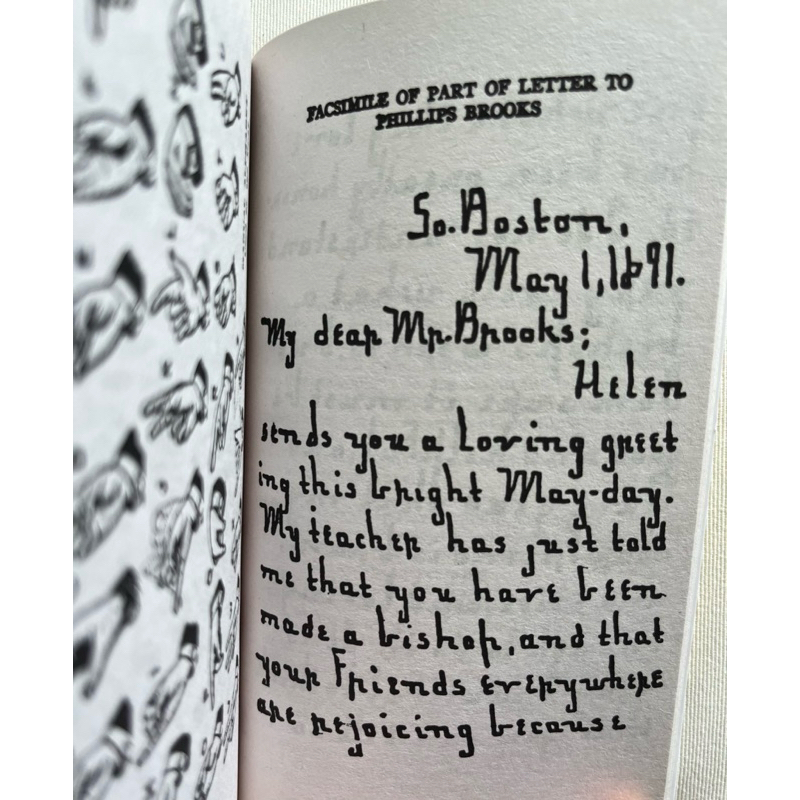 FACSIMILE OF PART OF LETTER TO
PHILLIPS BROOKS
So. Boston,
May 1, 1891.
My dear Mr. Brooks;
Helen
sends you a loving greet
ing this bright May-day.
My teacher has just told
me that you have been
made a bishop, and that
your friends everywhere
are rejoicing because